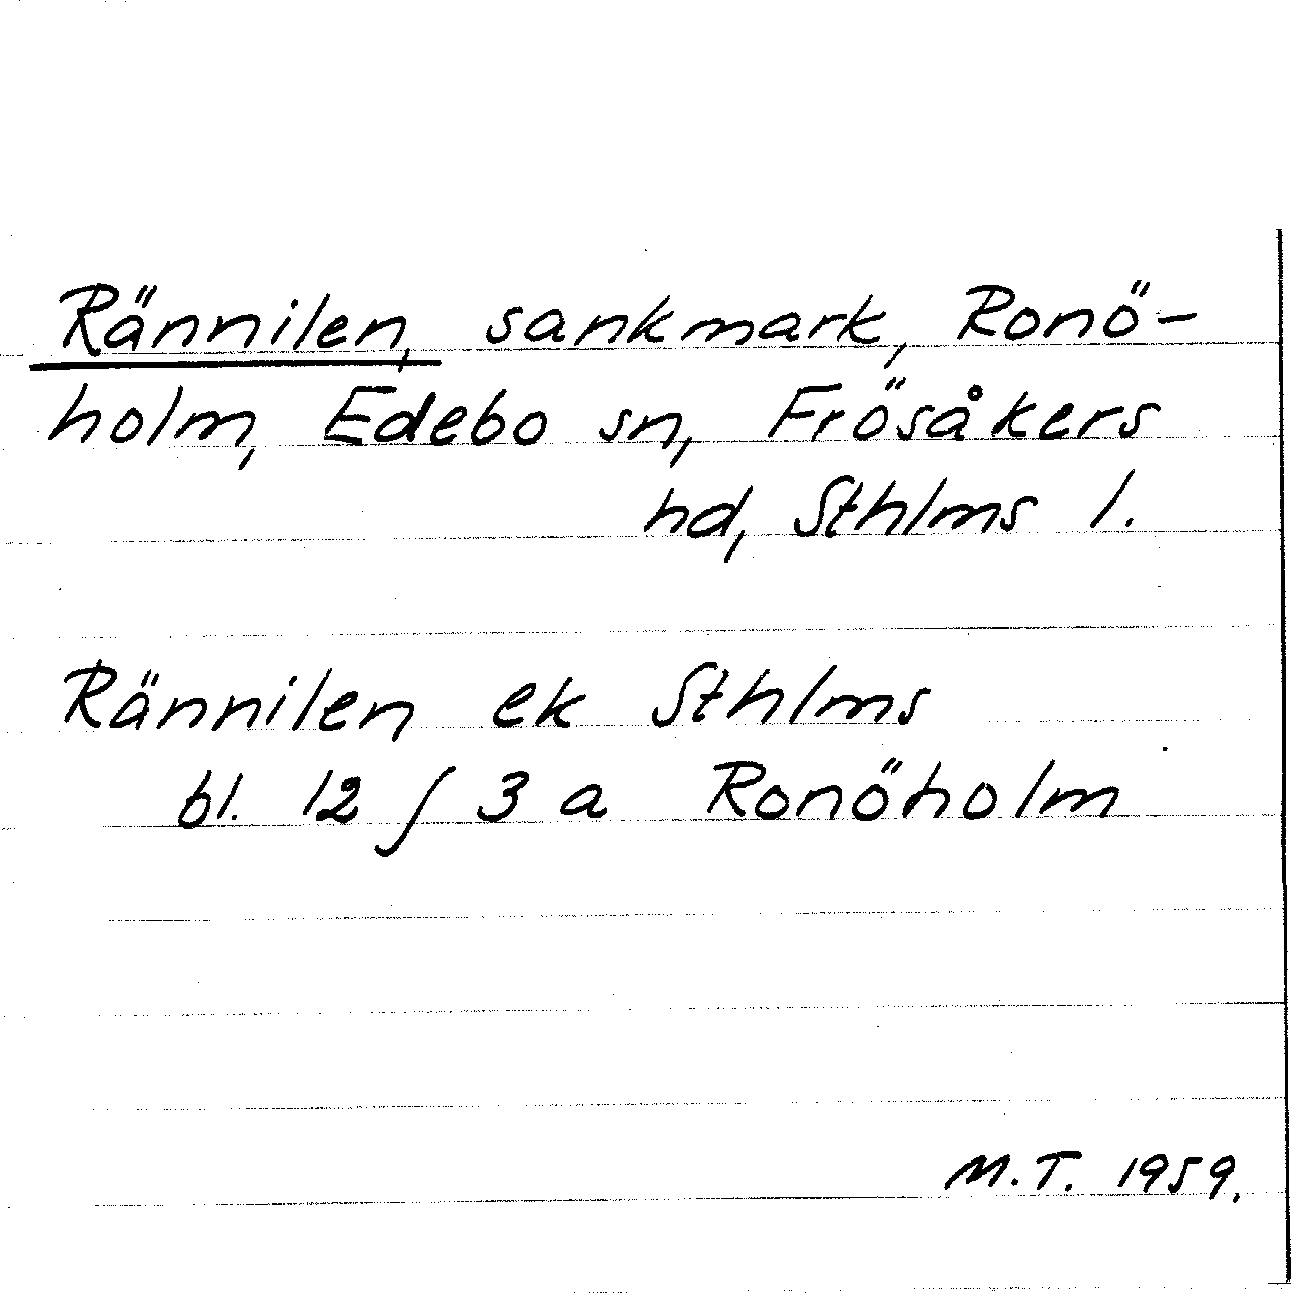 Rännilen, sankmark, Ronö-
holm, Edebo sn, Frösåkers
hd, Sthlms l.
Rännilen ek Sthlms
bl. 12 ∫ 3 a Ronöholm
M.T. 1959.